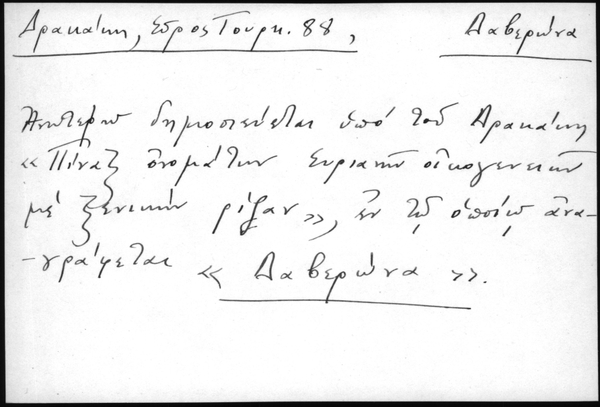 Δρακάκη, Σύρος Τουρκ. 88, Δαβερώνα
Ἀνωτέρω δημοσιεύεται ὑπό τοῦ Δρακάκη
« Πίναξ ὀνομάτων Συριανῶν οἰκογενειῶν
μέ ξενικήν ρίζαν», ἐν τῷ ὁποίῳ ἀνα-
-γράφεται « Δαβερώνα ».